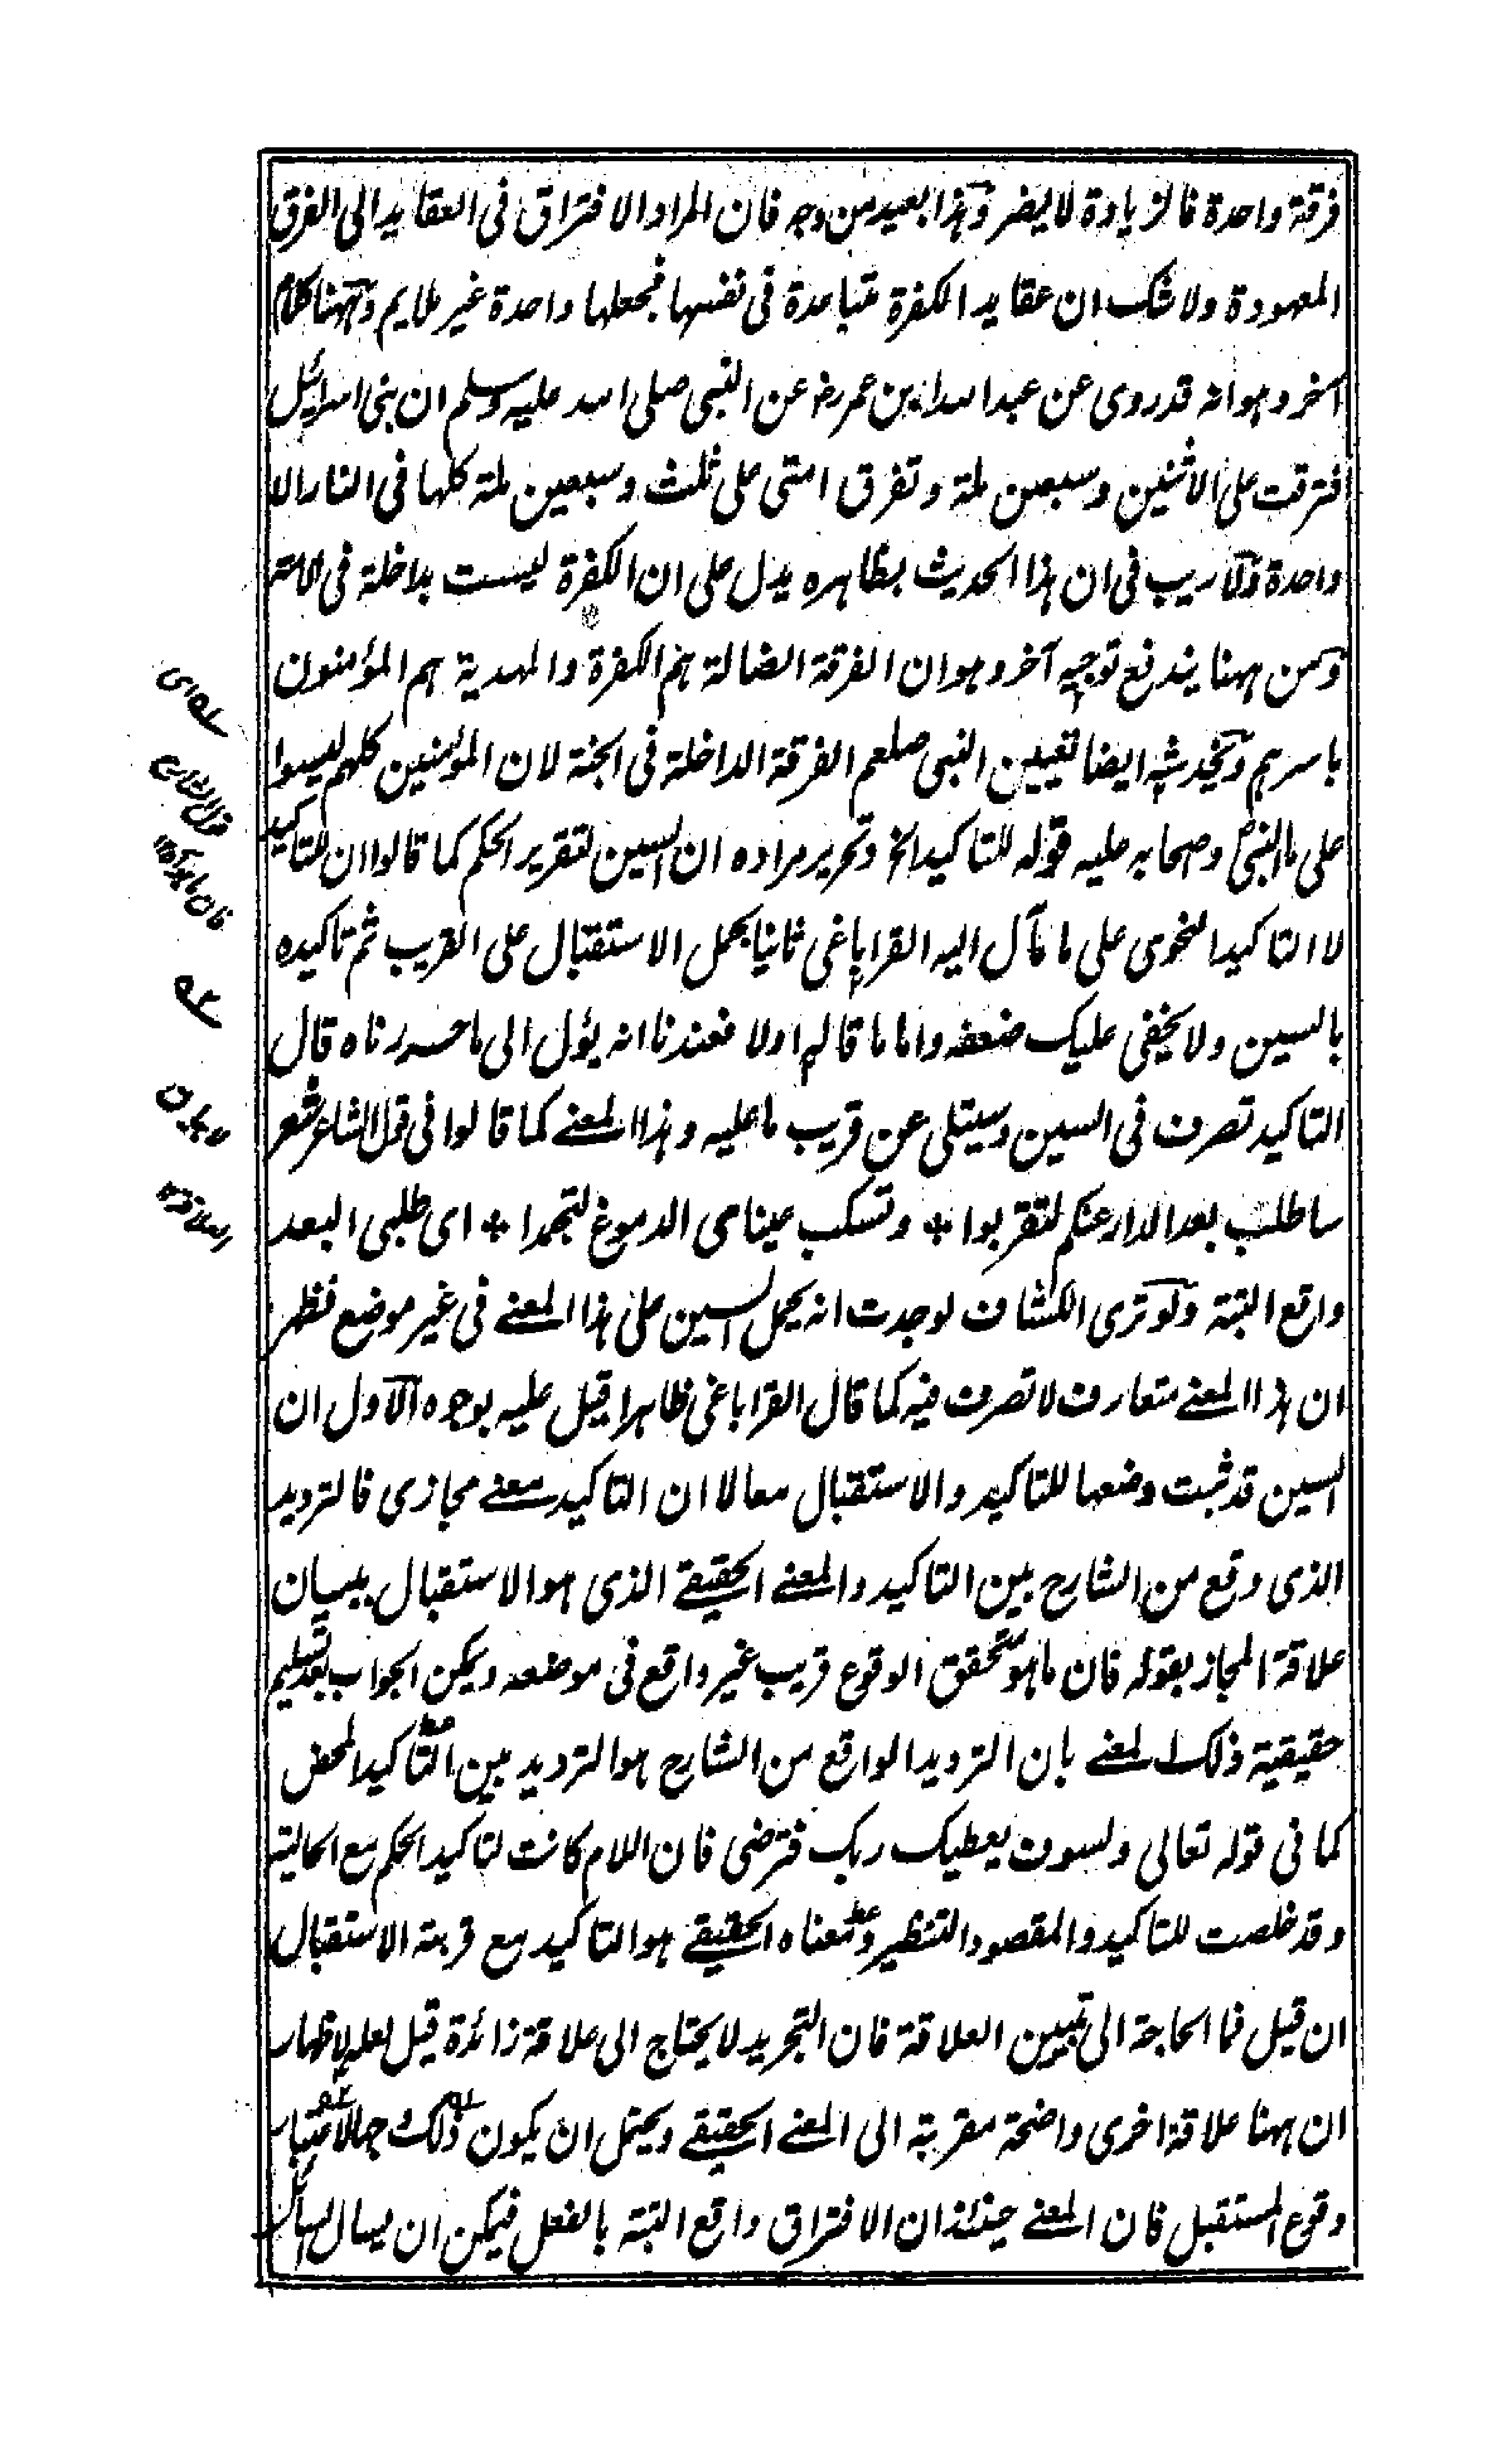 فرقة واحدة فالزيادة لا يضر وهذا بعيد من وجه فان المراد الافتراق فى العقايد الى الفرق
المعهودة ولا شك ان عقايد الكفرة متباعدة فى نفسها فجعلها واحدة غير ملايم وههنا كلام
آخر وهو انه قد روى عن عبد الله بن عمر رضه عن النبى صلى الله عليه وسلم ان بنى اسرائيل
افترقت على الاثنين وسبعين ملة وتفرق امتى على ثلث وسبعين ملة كلها فى النار الا
واحدة ولا ريب فى ان هذا الحديث بظاهره يدل على ان الكفرة ليست بداخلة فى الامة
ومن ههنا يندفع توجيه آخر وهو ان الفرقة الضالة هم الكفرة والمهدية هم المؤمنون
باسرهم ويخدشه ايضا تعيين النبى صلعم الفرقة الداخلة فى الجنة لان المؤمنين كلهم ليسوا
على ما النبى وصحابه عليه قوله للتاكيد الخ وتحرير مراده ان السين لتقرير الحكم كما قالوا ان للتاكيد
لا التاكيد النحوى على ما مآل اليه القراباغى ثانيا بحمل الاستقبال على القريب ثم تاكيده
بالسين ولا يخفى عليك ضعفه واما ما قاله اولا فعندنا انه يؤل الى ما حررناه قال
التاكيد تصرف فى السين وسيتلى عن قريب ما عليه وهذا المعنى كما قالوا فى قول الشاعر شعر
ساطلب بعد الدار عنكم لتقربوا * وتسكب عيناى الدموع لتجمدا * اى طلبى البعد
واقع البتة ولو ترى الكشاف لوجدت انه يحمل السين على هذا المعنى فى غير موضع فظهر
ان هذا المعنى متعارف لا تصرف فيه كما قال القراباغى ظاهرا قيل عليه بوجوه الاول ان
السين قد ثبت وضعها للتاكيد والاستقبال معا لا ان التاكيد معنى مجازى فالترديد
الذى وقع من الشارح بين التاكيد والمعنى الحقيقى الذى هو الاستقبال ببيان
علاقة المجاز بقوله فان ما هو متحقق الوقوع قريب غير واقع فى موضعه ويمكن الجواب بعد تسليم
حقيقية ذلك المعنى بان الترديد الواقع من الشارح هو الترديد بين التاكيد المحض
كما فى قوله تعالى ولسوف يعطيك ربك فترضى فان اللام كانت لتاكيد الحكم مع الحالية
وقد خلصت للتاكيد والمقصود التنظير ومعناه الحقيقى هو التاكيد مع قرينة الاستقبال
ان قيل فما الحاجة الى تبيين العلاقة فان التجريد لا يحتاج الى علاقة زائدة قيل لعله لاظهار
ان ههنا علاقة اخرى واضحة مقربة الى المعنى الحقيقى ويحتمل ان يكون ذلك جهالا عتبار
وقوع المستقبل فان المعنى حينئذ ان الافتراق واقع البتة بالفعل فيمكن ان يسال السائل